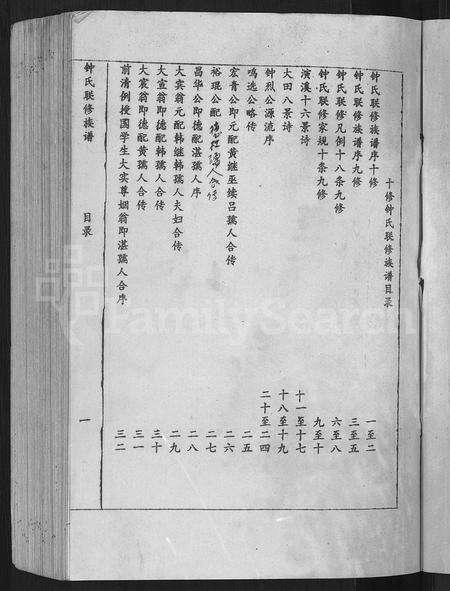 十修钟氏联修族谱目录
钟氏联修族谱序十修 一至二
钟氏联修族谱序九修 三至五
钟氏联修凡例十八条九修 六至八
钟氏联修家规十条九修 九至十
演溪十六景诗 十一至十七
大田八景诗 十八至十九
钟烈公源流序 二十至二四
鸣逸公略传 二五
宏青公即元配黄继巫续吕孺人合传 二六
裕琨公配 孺人合传 二七
昌华公即德配湛孺人序 二八
大宾翁元配韩继韩孺人夫妇合传 二九
大宣翁即德配韩孺人合传 三十
大宸翁即德配黄孺人合传 三一
前清例授国学生大实尊姻翁即湛孺人合序 三二
钟氏联修族谱 目录 一
FamilySearch